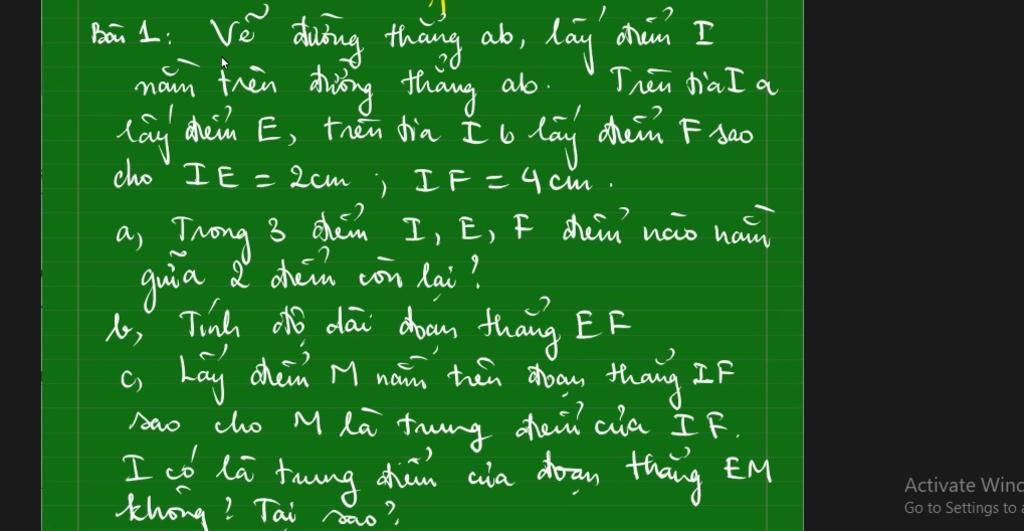 Bài 1: Vẽ đường thẳng ab, lấy điểm I
nằm trên đường thẳng ab. Trên tia Ia
lấy điểm E, trên tia Ib lấy điểm F sao
cho IE = 2cm ; IF = 4cm.
a, Trong 3 điểm I, E, F điểm nào nằm
giữa 2 điểm còn lại?
b, Tính độ dài đoạn thẳng EF
c, Lấy điểm M nằm trên đoạn thẳng IF
sao cho M là trung điểm của IF.
I có là trung điểm của đoạn thẳng EM
không? Tại sao?
Activate Wind
Go to Settings to a